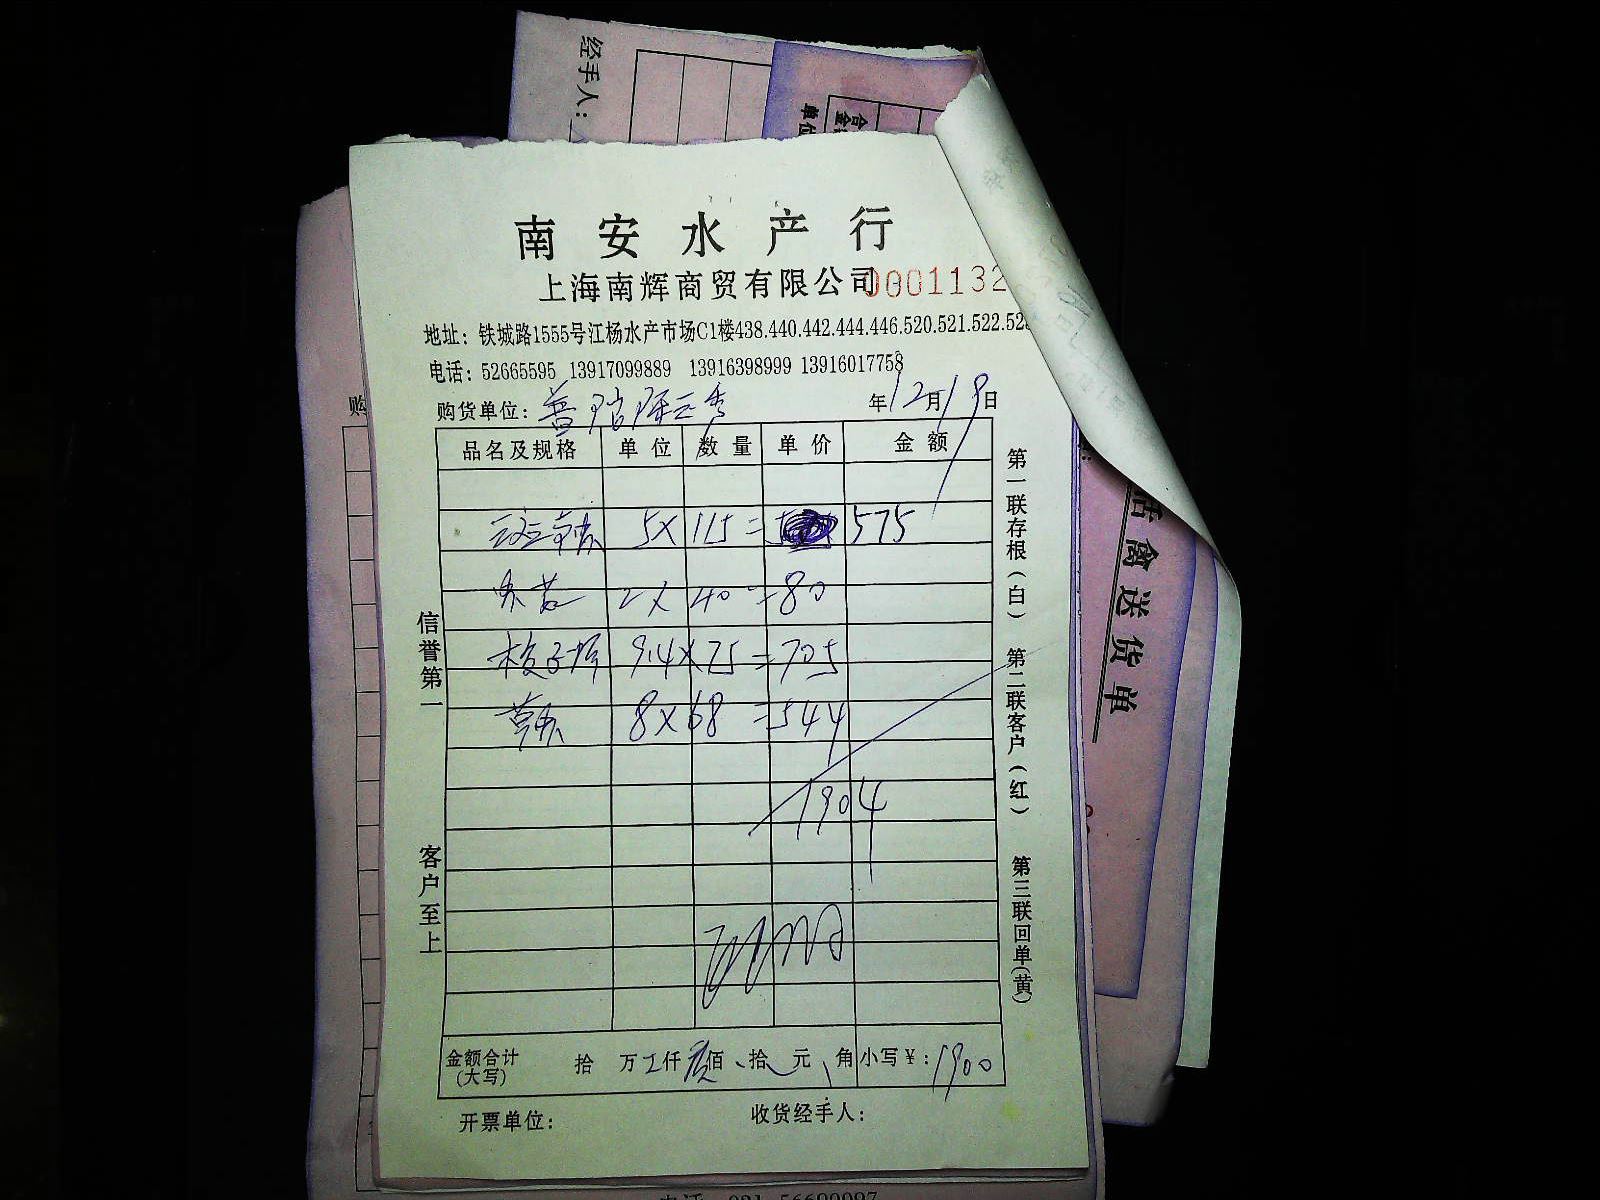 经手人:
南安水产行
上海南辉商贸有限公司 0001132
地址: 铁城路1555号江杨水产市场C1楼438.440.442.444.446.520.521.522.52
电话: 52665595 13917099889 13916398999 13916017758
购货单位: 年12月19日
品名及规格 单位 数量 单价 金额
5X 115= 575
2X 40=80
梭子蟹 9.4X75=705
8X68=544
1904
金额合计(大写) 拾 万 仟 佰 拾 元 角 小写¥: 1900
开票单位: 收货经手人:
信誉第一
客户至上
第一联存根(白) 第二联客户(红) 第三联回单(黄)
活禽送货单
购